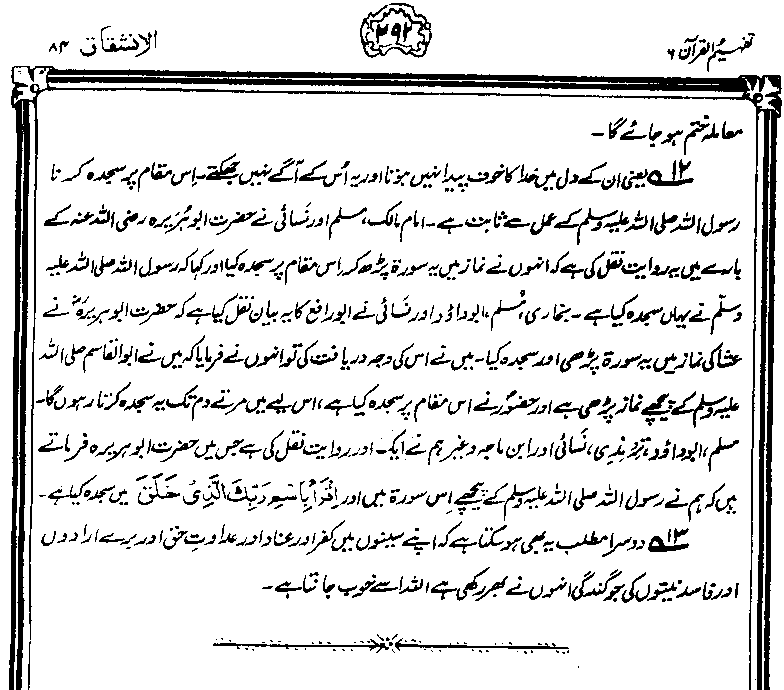 تفہیم القرآن ۶
۲۹۲
الانشقاق ۸۴
معاملہ ختم ہو جائے گا۔
۱۲ یعنی ان کے دل میں خدا کا خوف پیدا نہیں ہوتا اور یہ اُس کے آگے نہیں جھکتے۔ اِس مقام پر سجدہ کرنا
رسول اللہ صلی اللہ علیہ وسلم کے عمل سے ثابت ہے۔ امام مالک، مسلم اور نَسائی نے حضرت ابو ہُریرہ رضی اللہ عنہ کے
بارے میں یہ روایت نقل کی ہے کہ انہوں نے نماز میں یہ سورۃ پڑھ کر اِس مقام پر سجدہ کیا اور کہا کہ رسول اللہ صلی اللہ علیہ
وسلّم نے یہاں سجدہ کیا ہے۔ بخاری، مُسلم، ابوداؤد اور نَسائی نے ابو رافع کا یہ بیان نقل کیا ہے کہ حضرت ابو ہریرہؓ نے
عشا کی نماز میں یہ سورۃ پڑھی اور سجدہ کیا۔ میں نے اس کی وجہ دریافت کی تو انہوں نے فرمایا کہ میں نے ابوالقاسم صلی اللہ
علیہ وسلم کے پیچھے نماز پڑھی ہے اور حضورؐ نے اس مقام پر سجدہ کیا ہے، اس لیے میں مرتے دم تک یہ سجدہ کرتا رہوں گا۔
مسلم، ابوداؤد، ترمذی، نَسائی اور ابن ماجہ وغیرہم نے ایک اور روایت نقل کی ہے جس میں حضرت ابو ہریرہ فرماتے
ہیں کہ ہم نے رسول اللہ صلی اللہ علیہ وسلم کے پیچھے اِس سورۃ میں اور اِقْرَأْ بِاسْمِ رَبِّكَ الَّذِىْ خَلَقَ میں سجدہ کیا ہے۔
۱۳ دوسرا مطلب یہ بھی ہو سکتا ہے کہ اپنے سینوں میں کفر اور عناد اور عداوتِ حق اور برے ارادوں
اور فاسد نیتوں کی جو گندگی انہوں نے بھر رکھی ہے اللہ اسے خوب جانتا ہے۔